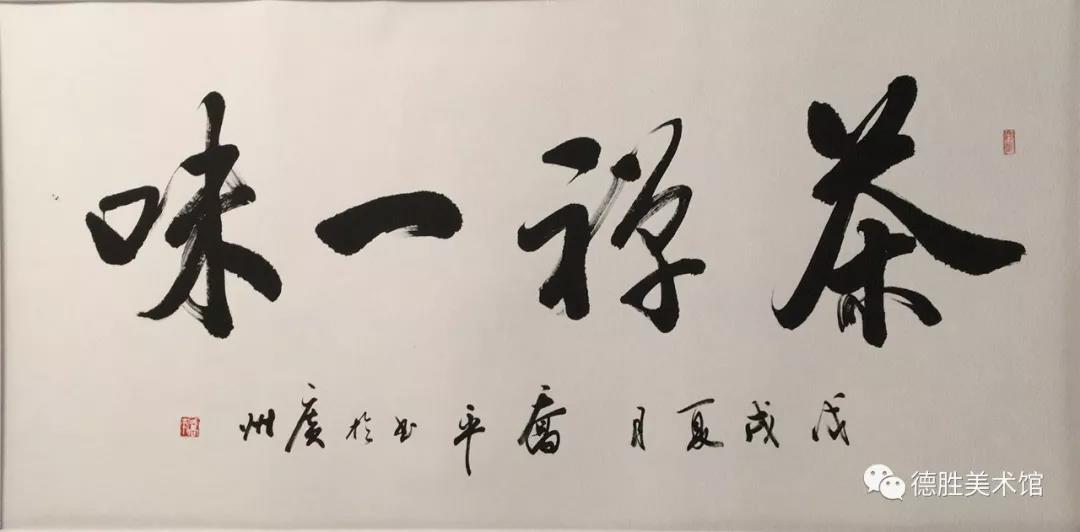 茶禅一味
戊戌夏月 喬平书於廣州
德胜美术馆